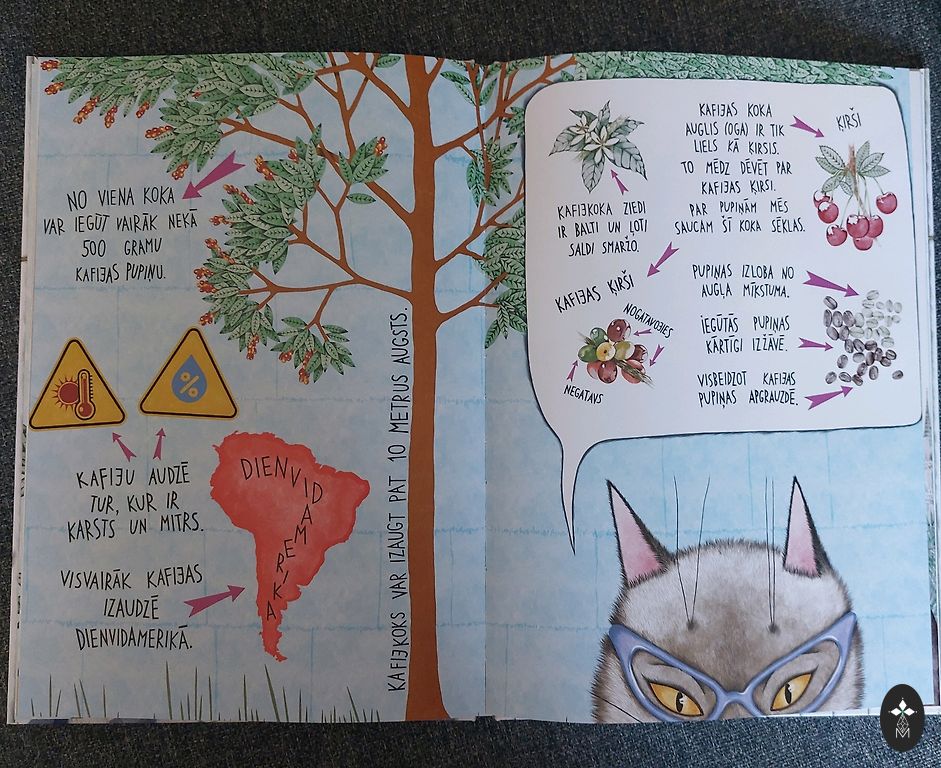 NO VIENA KOKA
VAR IEGŪT VAIRĀK NEKĀ
500 GRAMU
KAFIJAS PUPIŅU.
%
KAFIJU AUDZĒ
TUR, KUR IR
KARSTS UN MITRS.
VISVAIRĀK KAFIJAS
IZAUDZĒ
DIENVIDAMERIKĀ.
DIENVIDAMERIKA
KAFIJKOKS VAR IZAUGT PAT 10 METRUS AUGSTS.
KAFIJKOKA ZIEDI
IR BALTI UN ĻOTI
SALDI SMARŽO.
KAFIJAS KOKA
AUGLIS (OGA) IR TIK
LIELS KĀ ĶIRSIS.
TO MĒDZ DĒVĒT PAR
KAFIJAS ĶIRSI.
PAR PUPIŅĀM MĒS
SAUCAM ŠĪ KOKA SĒKLAS.
ĶIRŠI
KAFIJAS ĶIRŠI
NOGATAVOJIES
NEGATAVS
PUPIŅAS IZLOBA NO
AUGĻA MĪKSTUMA.
IEGŪTĀS PUPIŅAS
KĀRTĪGI IZŽĀVĒ.
VISBEIDZOT KAFIJAS
PUPIŅAS APGRAUZDĒ.
M